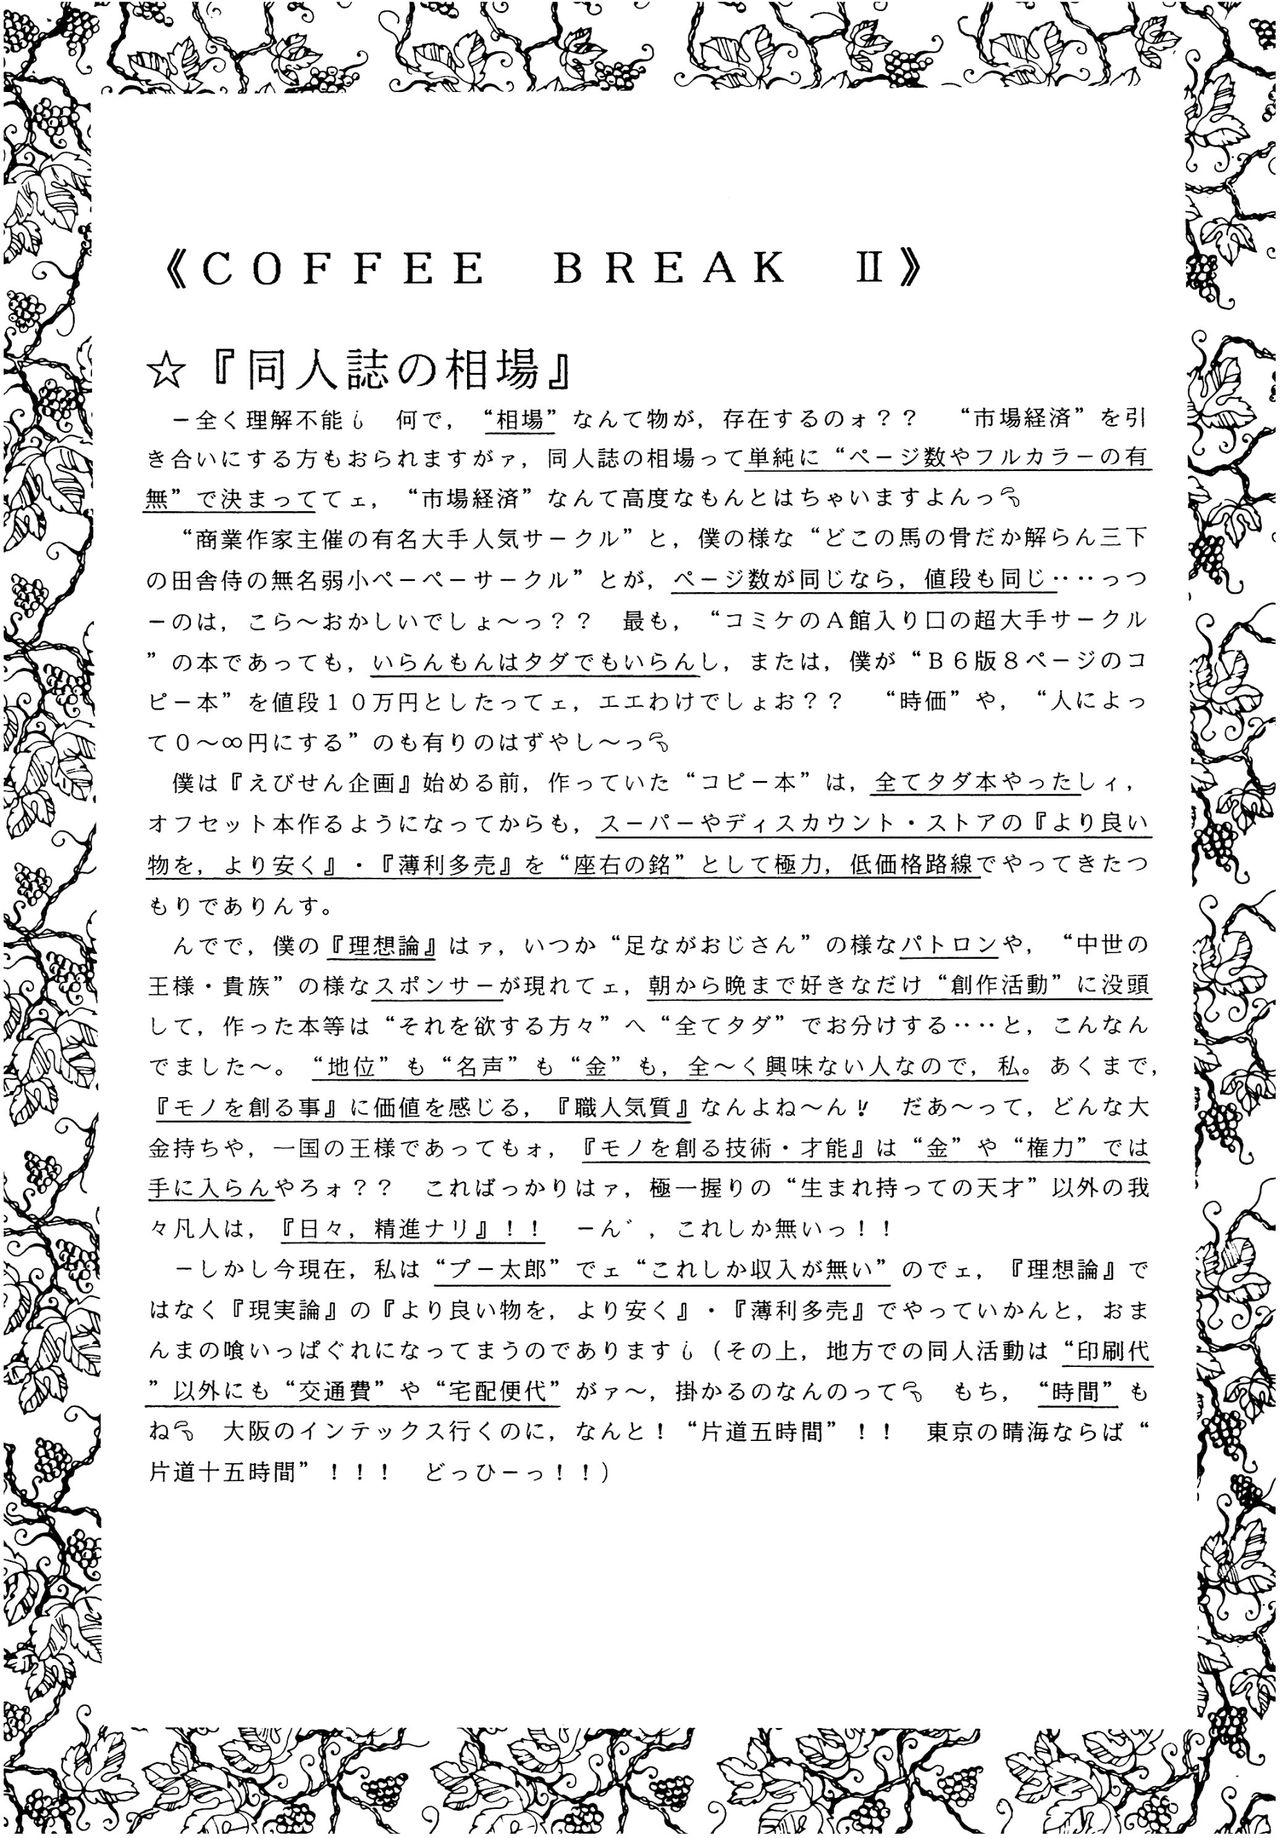 《ＣＯＦＦＥＥ　ＢＲＥＡＫ　Ⅱ》
☆『同人誌の相場』
ー全く理解不能　何で，“相場”なんて物が，存在するのォ？？　“市場経済”を引
き合いにする方もおられますがァ，同人誌の相場って単純に“ページ数やフルカラーの有
無”で決まっててェ，“市場経済”なんて高度なもんとはちゃいますよんっ
“商業作家主催の有名大手人気サークル”と，僕の様な“どこの馬の骨だか解らん三下
の田舎侍の無名弱小ペーペーサークル”とが，ページ数が同じなら，値段も同じ‥‥っつ
ーのは，こら〜おかしいでしょ〜っ？？　最も，“コミケのＡ館入り口の超大手サークル
”の本であっても，いらんもんはタダでもいらんし，または，僕が“Ｂ６版８ページのコ
ピー本”を値段１０万円としたってェ，エエわけでしょお？？　“時価”や，“人によっ
て０〜∞円にする”のも有りのはずやし〜っ
僕は『えびせん企画』始める前，作っていた“コピー本”は，全てタダ本やったしィ，
オフセット本作るようになってからも，スーパーやディスカウント・ストアの『より良い
物を，より安く』・『薄利多売』を“座右の銘”として極力，低価格路線でやってきたつ
もりでありんす。
んでで，僕の『理想論』はァ，いつか“足ながおじさん”の様なパトロンや，“中世の
王様・貴族”の様なスポンサーが現れてェ，朝から晩まで好きなだけ“創作活動”に没頭
して，作った本等は“それを欲する方々”へ“全てタダ”でお分けする‥‥と，こんなん
でました〜。“地位”も“名声”も“金”も，全〜く興味ない人なので，私。あくまで，
『モノを創る事』に価値を感じる，『職人気質』なんよね〜ん！　だあ〜って，どんな大
金持ちや，一国の王様であってもォ，『モノを創る技術・才能』は“金”や“権力”では
手に入らんやろォ？？　こればっかりはァ，極一握りの“生まれ持っての天才”以外の我
々凡人は，『日々，精進ナリ』！！　ーん゛，これしか無いっ！！
ーしかし今現在，私は“プー太郎”でェ“これしか収入が無い”のでェ，『理想論』で
はなく『現実論』の『より良い物を，より安く』・『薄利多売』でやっていかんと，おま
んまの喰いっぱぐれになってまうのであります（その上，地方での同人活動は“印刷代
”以外にも“交通費”や“宅配便代”がァ〜，掛かるのなんのって　もち，“時間”も
ね　大阪のインテックス行くのに，なんと！“片道五時間”！！　東京の晴海ならば“
片道十五時間”！！！　どっひーっ！！）